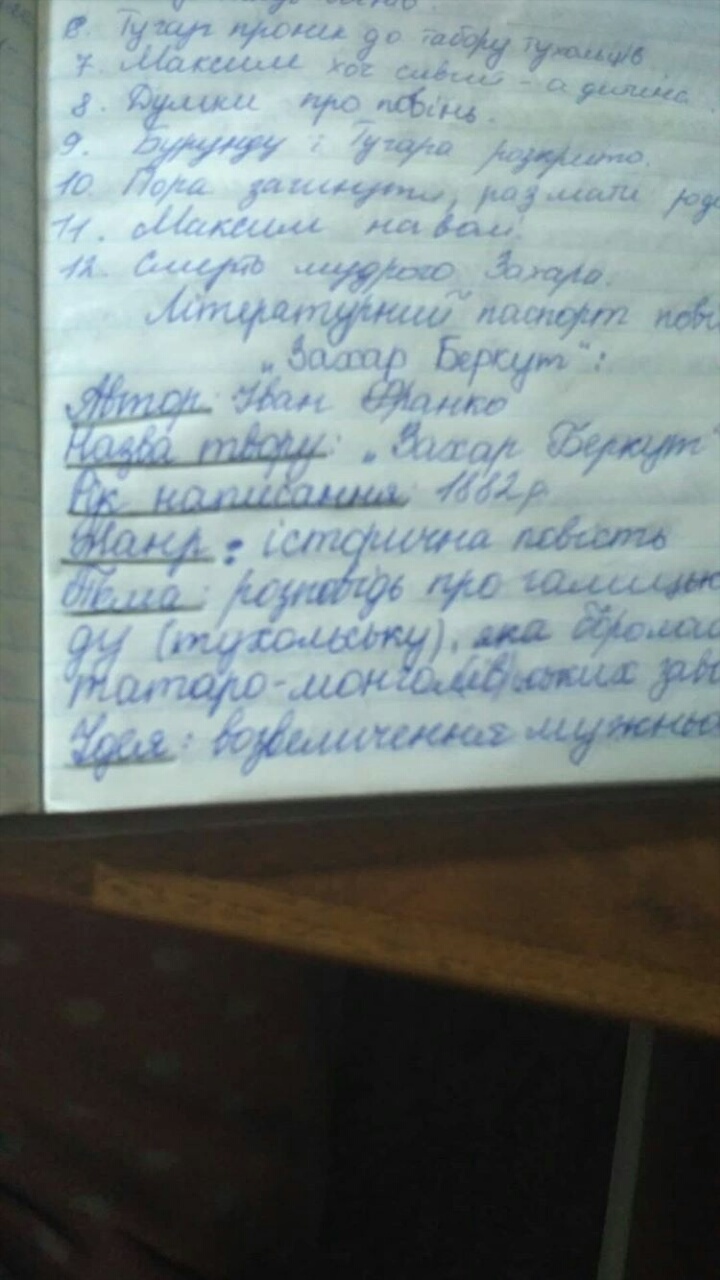 6. Тугар проник до табору тухольців
7. Максим хоч сивий - а дитина
8. Думки про повінь.
9. Бурунду і Тугара розкрито.
10. Пора загинути, раз мати
11. Максим на волі.
12. Смерть мудрого Захара.
Літературний паспорт пові
„Захар Беркут":
Автор: Іван Франко
Назва твору: „Захар Беркут"
Рік написання: 1882 р
Жанр: історична повість
Тема: розповідь про галицьк
ду (тухольську), яка боролас
татаро-монгол(ів)ських
Ідея: возвеличення мужньо